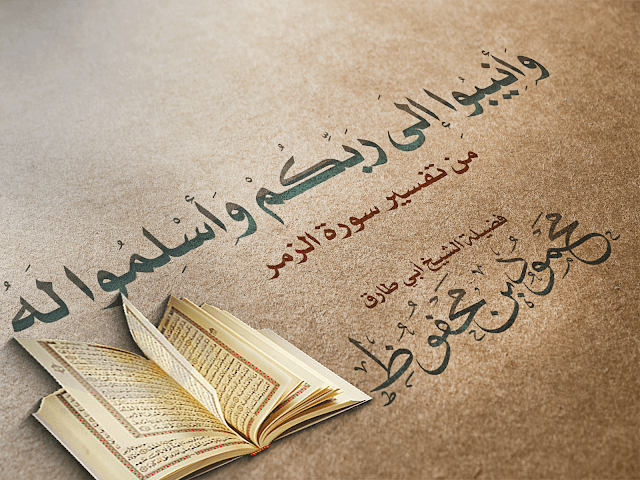 وَأَنِيبُوا إِلَى رَبِّكُمْ وَأَسْلِمُوا لَهُ
من تفسير سورة الزمر
فضيلة الشيخ ابي طارق
محمود بن محفوظ